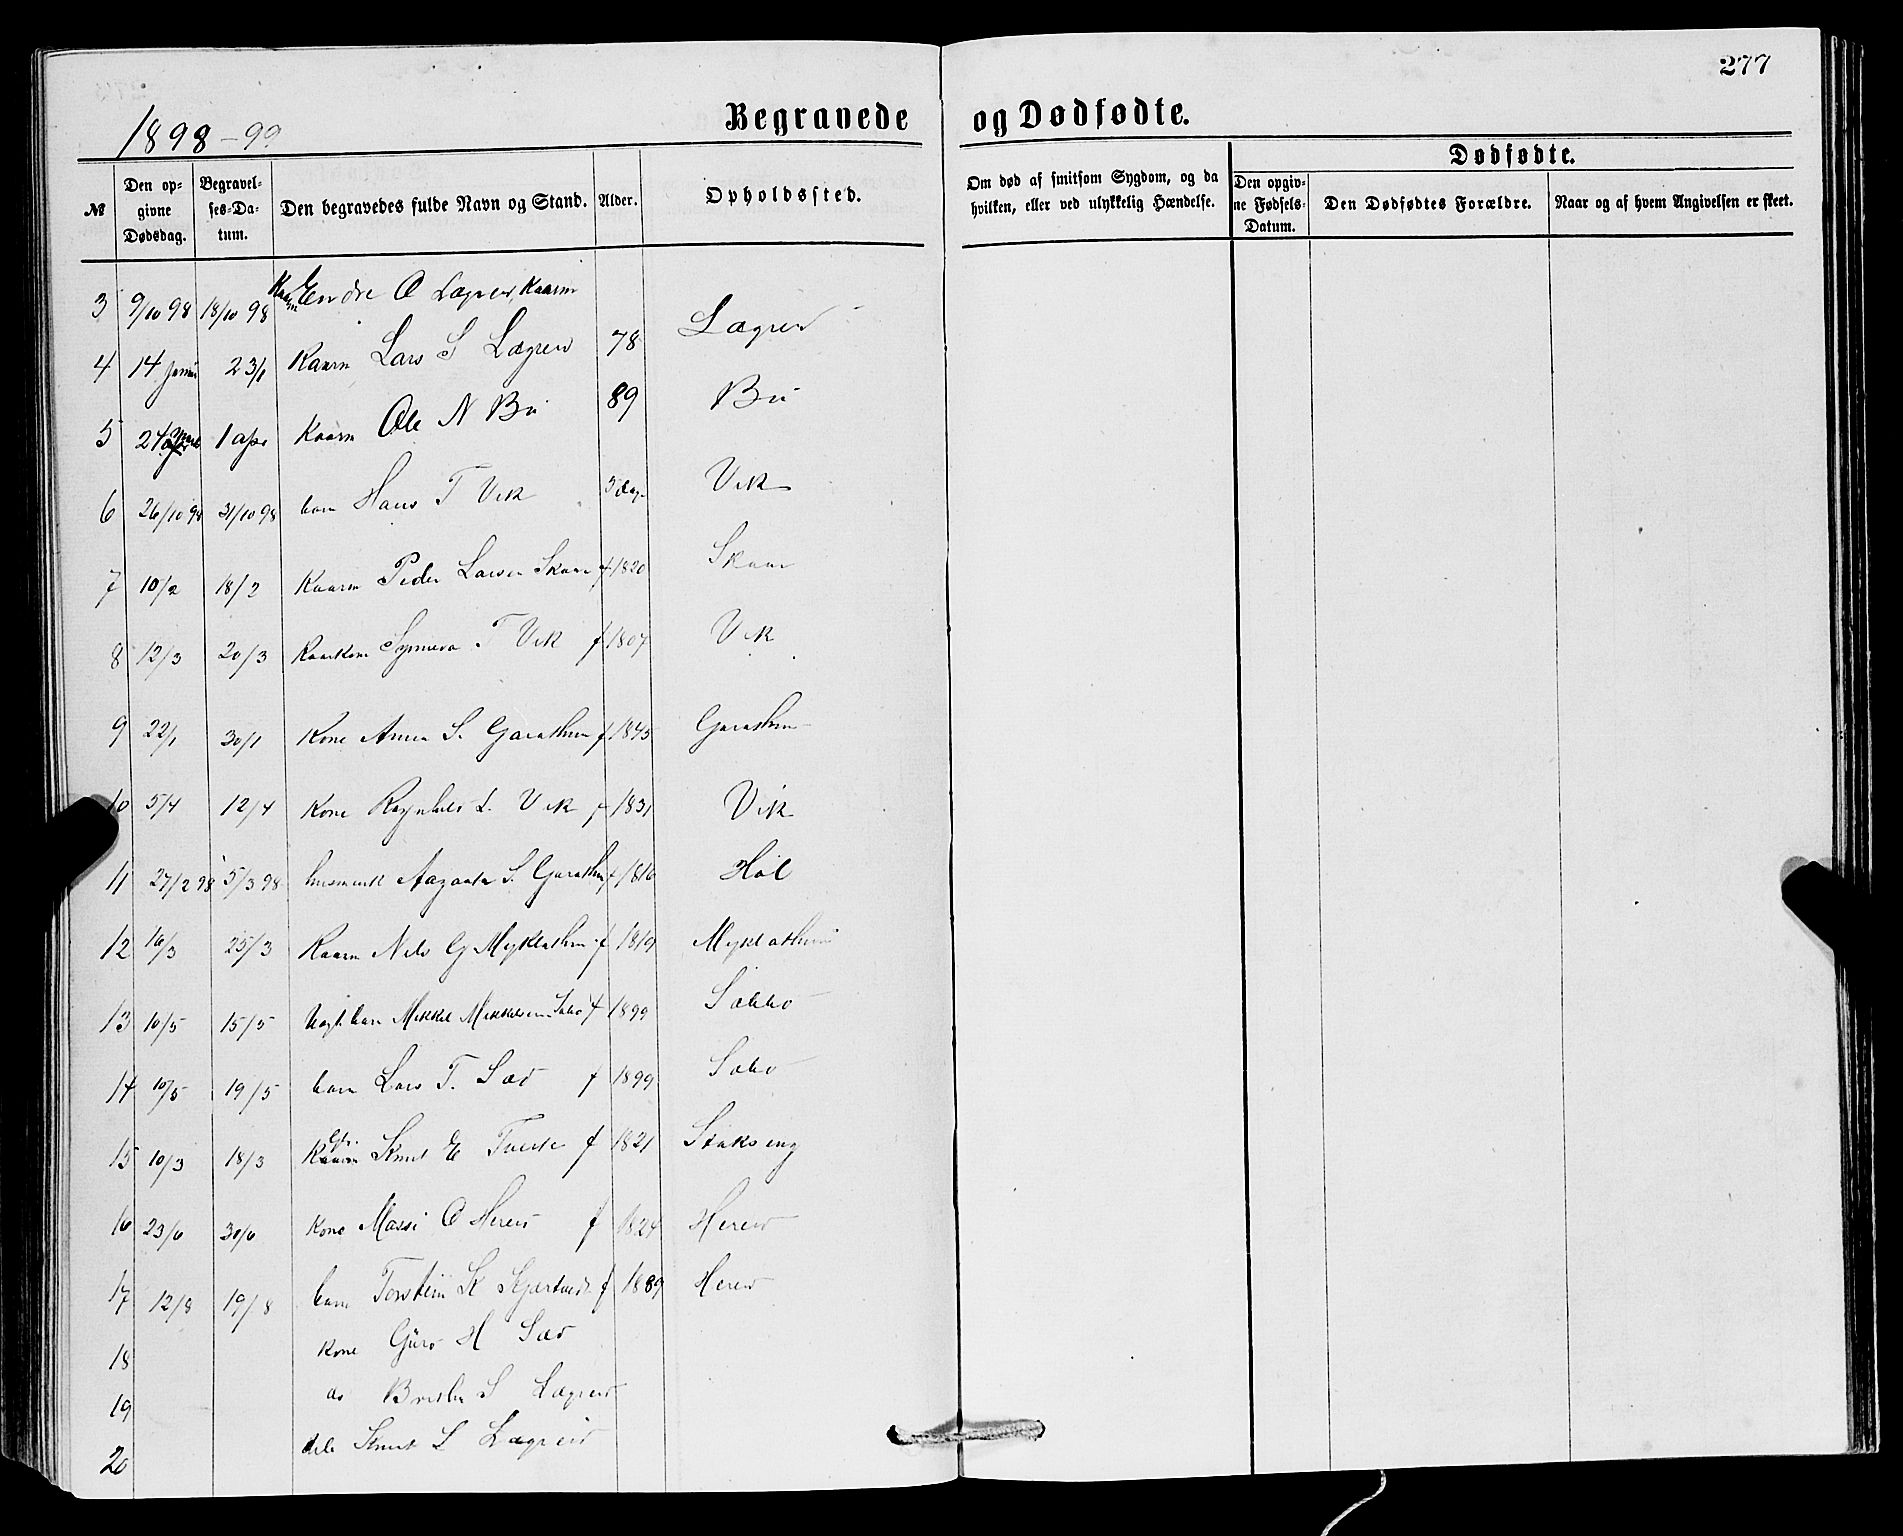 277
1898-99
Begravede og Dødfødte.
№ Den opgivne Dødsdag. Begravelses-Datum. Den begravedes fulde Navn og Stand. Alder. Opholdssted. Om død af smitsom Sygdom, og da hvilken, eller ved ulykkelig Hændelse. Dødfødte. Den opgivne Fødsels-Datum. Den Dødfødtes Forældre. Naar og af hvem Angivelsen er skeet.
3 9/10 98 18/10 98 Endre O Lægreid, Kaarm
4 14 23/1 Kaarm Lars S Lægreid 78 Lægreid
5 24 1 apr Kaarm Ole N Bu 89 Bu
6 26/10 98 31/10 98 barn Hans T Vik Vik
7 10/2 18/2 Kaarm Peder Larsen Skaar f 1820 Skaar
8 12/3 20/3 Synneva T Vik f 1807 Vik
9 22/1 30/1 Kone Anna S. Garathun f 1845 Garathun
10 5/4 12/4 Kone Ragnhild L. Vik f 1831 Vik
11 27/2 98 5/3 98 Aagaata S. Garathun f 1816 Hol
12 16/3 25/3 Kaarm Nils G Myklathun f 1819 Myklathun
13 10/5 15/5 barn Mikkel Mikkelsen Sæbø f 1899 Sæbbø
14 10/5 19/5 barn Lars T. Sæd f 1899 Sæbø
15 10/3 18/3 Kaarm Knut E Tveite f 1821
16 23/6 30/6 Kone Massi O Hereid f 1824 Hereid
17 12/8 19/8 barn Torstein K f 1889 Hereid
18 Kone Guro H Sæd
19 do S Lægreid
20 Knut L Lægreid